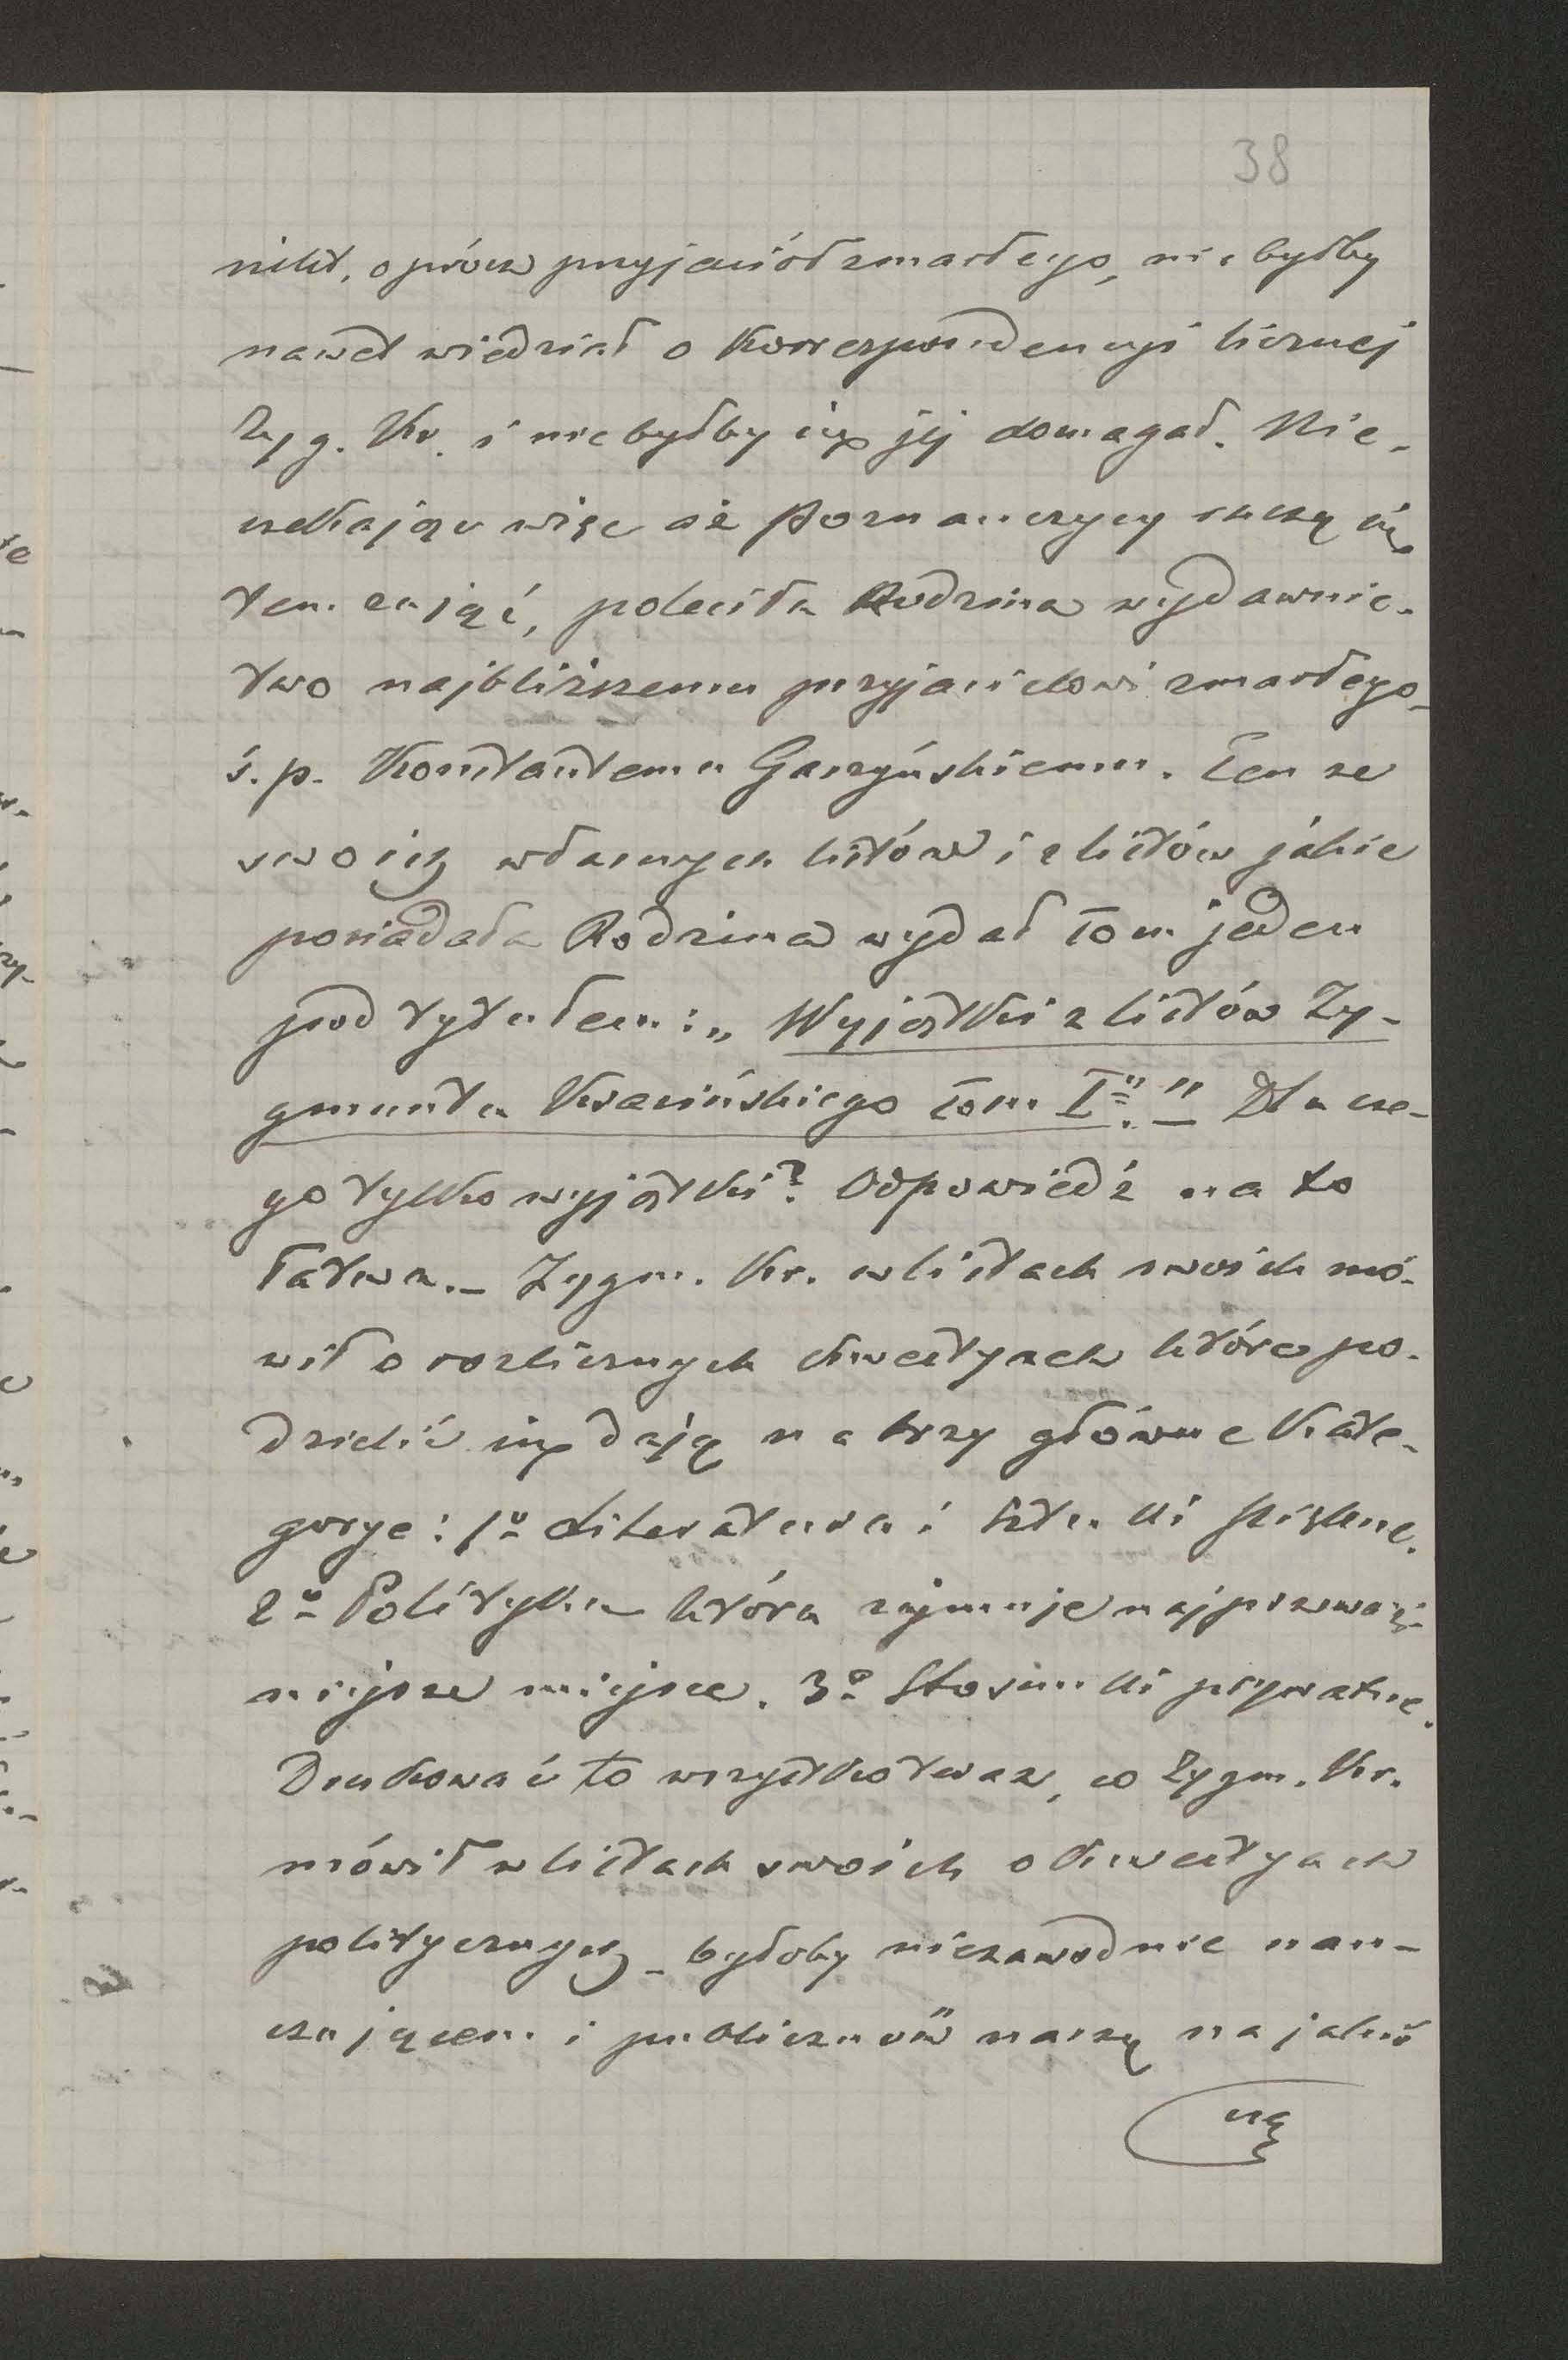 38
nikt, oprócz przyjaciół zmarłego, nie byłby
nawet wiedział o Korrespondencyi licznej
Zyg. Kr. i nie byłby się jej domagał. Nie-
czekając więc aż Poznańczycy raczą się
tem zająć, poleciła Rodzina wydawnic-
two najbliższemu przyjacielowi zmarłego_
ś. p. Konstantemu Gaszyńskiemu. Ten ze
swoich własnych listów i z listów jakie
posiadała Rodzina wydał tom jeden
pod tytułem: „Wyjątki z listów Zy-
gmunta Krasińskiego tom I." Dla cze-
go tylko wyjątki? Odpowiedź na to
łatwa._ Zygm. Kr. w listach swoich mó-
wił o rozlicznych kwestyach które po-
dzielić się dają na trzy główne Kate-
gorye: 1º Literatura i sztuki piękne.
2º Polityka która zajmuje najprzeważ-
niejsze miejsce. 3º Stosunki prywatne.
Drukować to wszystko teraz, co Zygm. Kr.
mówił w listach swoich o kwestyach
politycznych _ byłoby niezawodnie nau-
czającem i publiczność naszą na jakąś